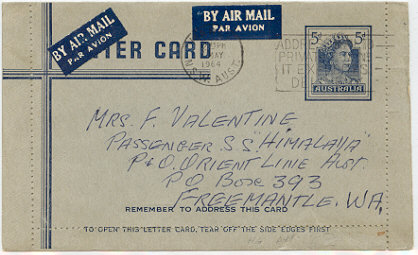 BY AIR MAIL
PAR AVION
BY AIR MAIL
PAR AVION
LETTER CARD
PM
MAY
1964
N.S.W. AUST
ADDRESS
PRIV
IT
5d
5d
AUSTRALIA
MRS. F. VALENTINE
PASSENGER S.S "HIMALAYA"
P&O. ORIENT LINE
P.O. BOX 393
FREEMANTLE. W.A.
REMEMBER TO ADDRESS THIS CARD
TO OPEN THIS LETTER CARD, TEAR OFF THE SIDE EDGES FIRST